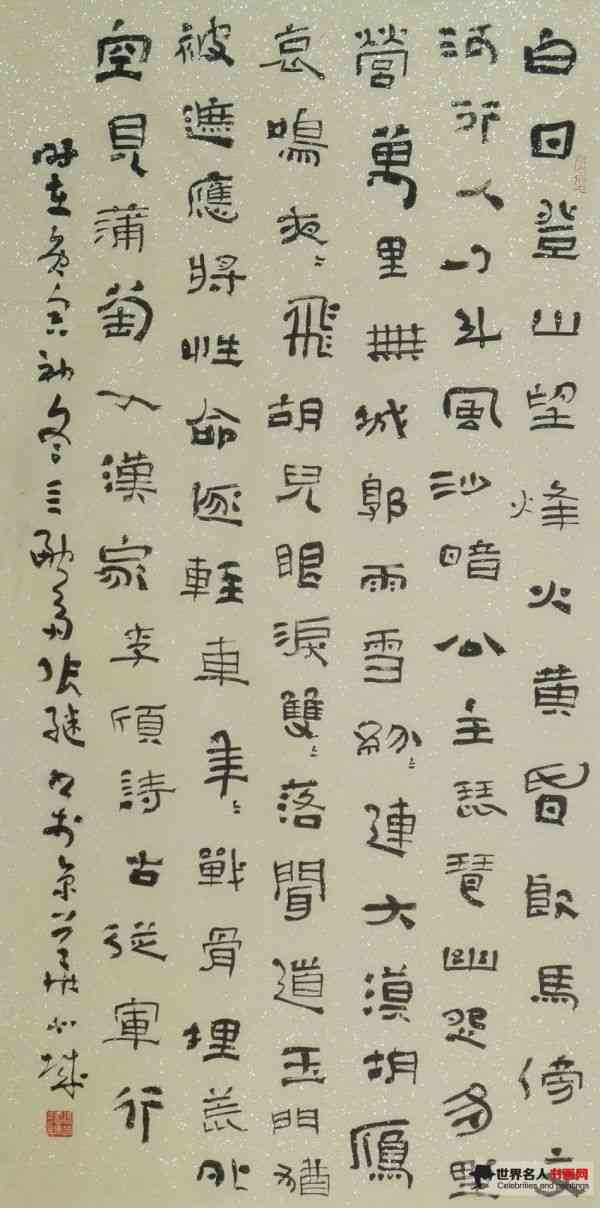 白日登山望烽火黄昏飲馬傍交
河行人刁斗風沙暗公主琵琶幽怨多野
營萬里無城郭雨雪紛〻連大漠胡鴈
哀鳴夜〻飛胡兒眼淚雙〻落聞道玉門猶
被遮應將性命逐輕車年〻戰骨埋荒外
空見蒲萄入漢家李頎詩古從軍行
時在庚寅初冬三齋張継书於京華城
世界名人书画网
Celebrities and paintings